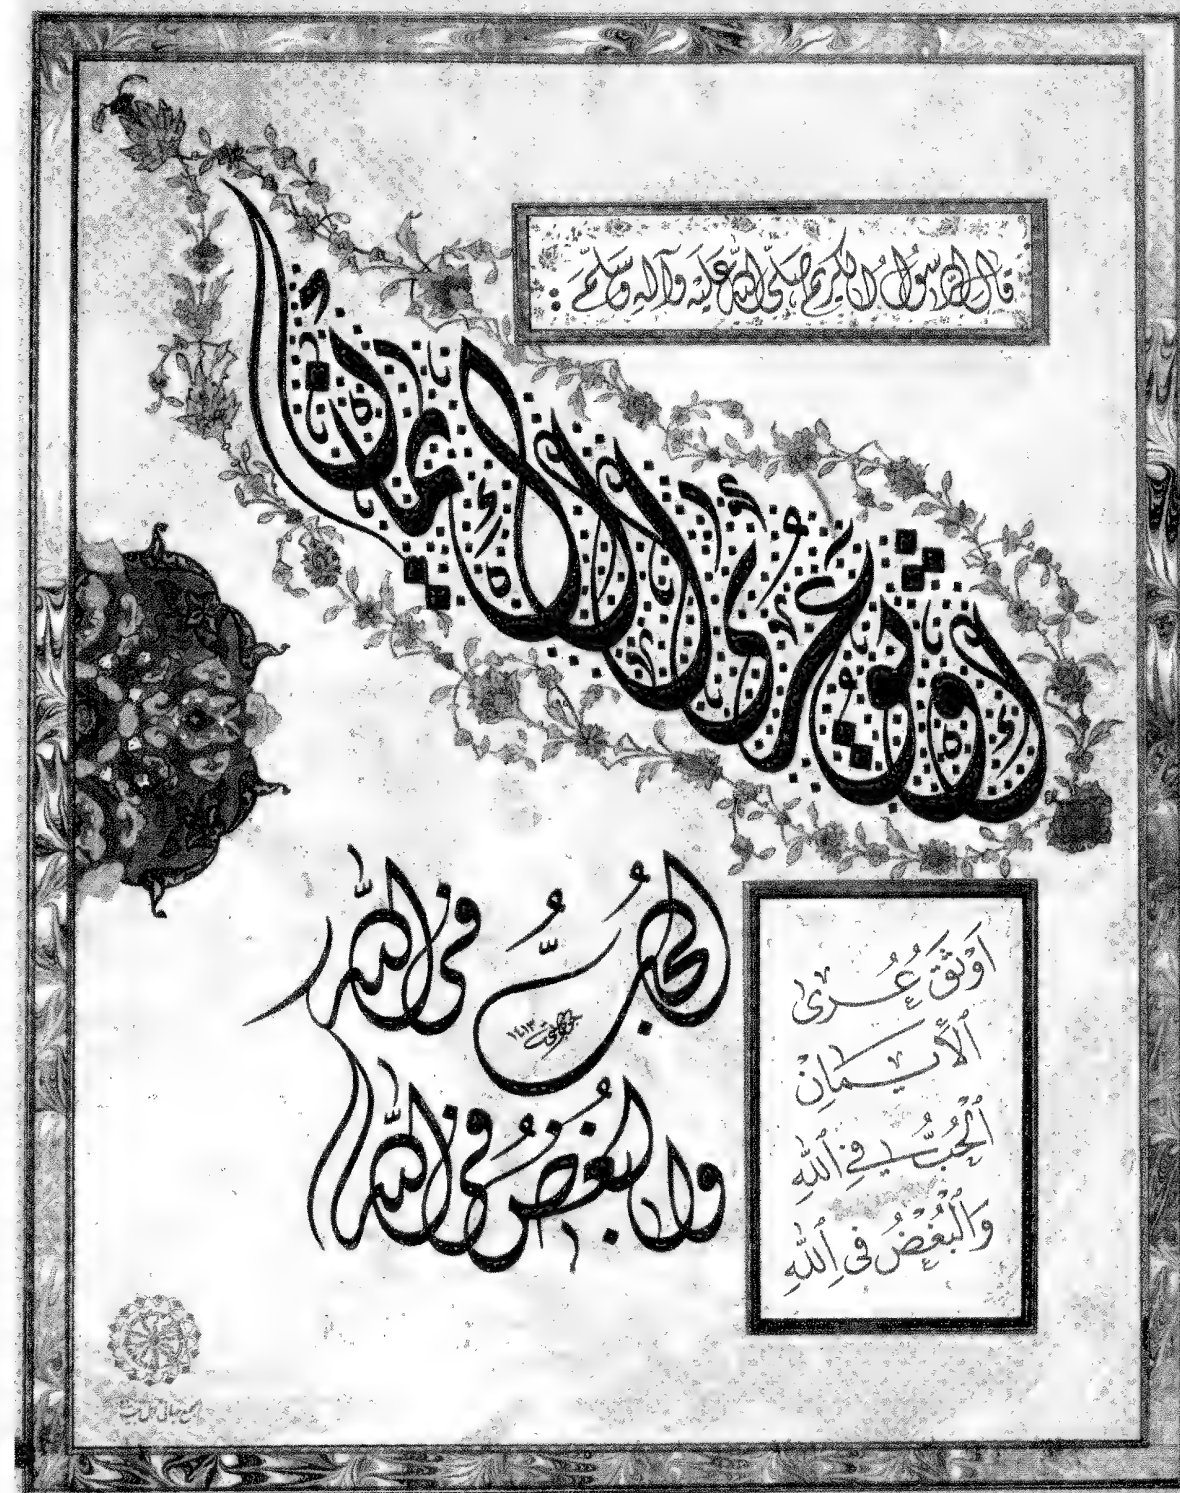 قال الرسول الكريم صَلَّى اللهُ عَلَيْهِ وَآلِهِ وَسَلَّمَ :
أوثق عُرى الإيمان
الحُبُّ في الله
والبُغضُ في الله
١٤١٣
اَوْثَقَ عُرى
ٱلْأَيمَانِ
ٱلْحُبُّ فِي ٱللهِ
وَٱلْبُغْضُ فِي ٱللهِ